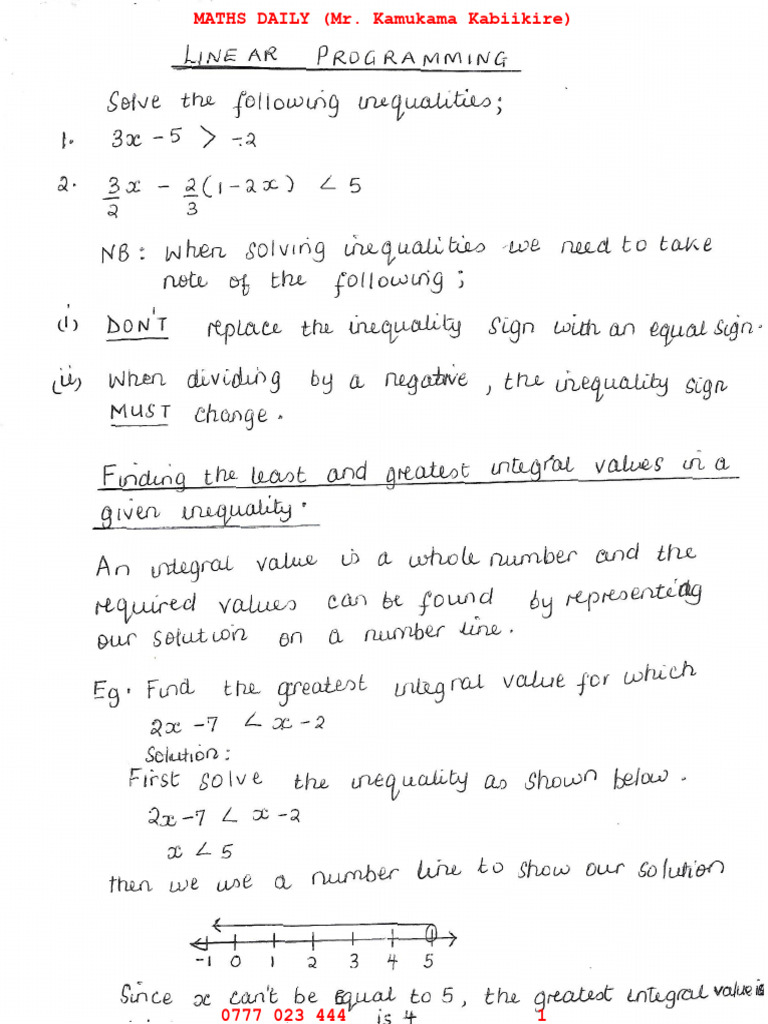 MATHS DAILY (Mr. Kamukama Kabiikire)
LINEAR PROGRAMMING
Solve the following inequalities;
1. 3x - 5 > -2
2. 3/2 x - 2/3 (1 - 2x) < 5
NB: When solving inequalities we need to take
note of the following;
(i) DON'T replace the inequality sign with an equal sign.
(ii) When dividing by a negative, the inequality sign
MUST change.
Finding the least and greatest integral values in a
given inequality.
An integral value is a whole number and the
required values can be found by representing
our solution on a number line.
Eg. Find the greatest integral value for which
2x - 7 < x - 2
Solution:
First solve the inequality as shown below.
2x - 7 < x - 2
x < 5
then we use a number line to show our solution
-1 0 1 2 3 4 5
Since x can't be equal to 5, the greatest integral value is
is 4
0777 023 444 1